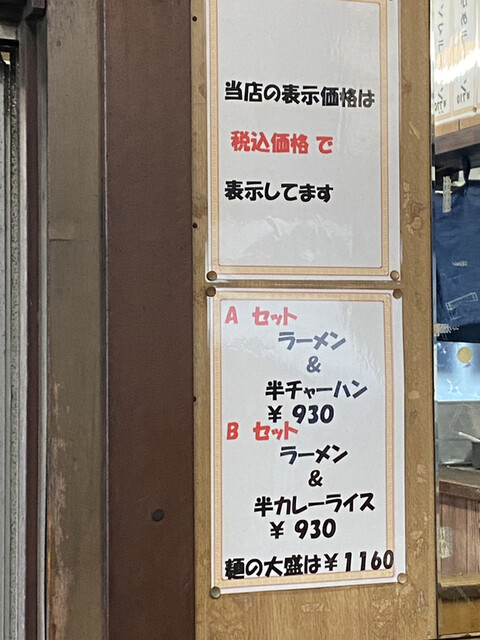 当店の表示価格は
税込価格で
表示してます
A セット
ラーメン
&
半チャーハン
¥ 930
B セット
ラーメン
&
半カレーライス
¥ 930
麺の大盛は¥1160